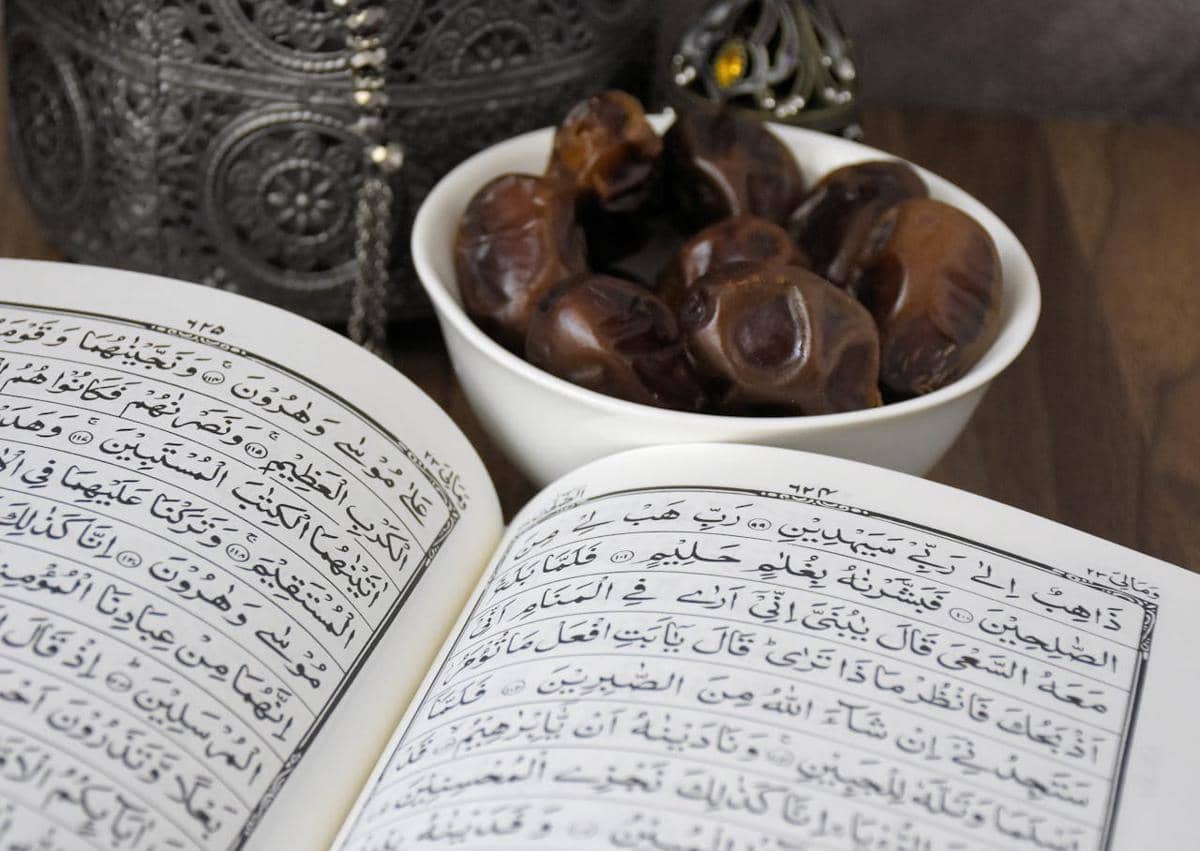 وَمَالِىَ ٢٣
٦٢٤
ذَاهِبٌ اِلٰى رَبِّىْ سَيَهْدِيْنِ ﴿٩٩﴾ رَبِّ هَبْ لِىْ مِنَ
الصّٰلِحِيْنَ ﴿١٠٠﴾ فَبَشَّرْنٰهُ بِغُلٰمٍ حَلِيْمٍ ﴿١٠١﴾ فَلَمَّا بَلَغَ
مَعَهُ السَّعْىَ قَالَ يٰبُنَىَّ اِنِّىْۤ اَرٰى فِى الْمَنَامِ اَنِّىْۤ
اَذْبَحُكَ فَانْظُرْ مَاذَا تَرٰىؕ قَالَ يٰۤاَبَتِ افْعَلْ مَا تُؤْمَرُ
سَتَجِدُنِىْۤ اِنْ شَآءَ اللّٰهُ مِنَ الصّٰبِرِيْنَ ﴿١٠٢﴾ فَلَمَّاۤ
اَسْلَمَا وَتَلَّهٗ لِلْجَبِيْنِ ﴿١٠٣﴾ وَنَادَيْنٰهُ اَنْ يّٰۤاِبْرٰهِيْمُ ﴿١٠٤﴾ قَدْ
اِنَّا كَذٰلِكَ نَجْزِى الْمُحْسِنِيْنَ
وَفَدَيْنٰهُ
وَمَالِىَ ٢٣
٦٢٥
عَلٰى مُوْسٰى وَهٰرُوْنَ ﴿١١٤﴾ وَنَجَّيْنٰهُمَا وَقَوْمَ
الْكَرْبِ الْعَظِيْمِ ﴿١١٥﴾ وَنَصَرْنٰهُمْ فَكَانُوْا هُمُ
اٰتَيْنٰهُمَا الْكِتٰبَ الْمُسْتَبِيْنَ ﴿١١٧﴾
الْمُسْتَقِيْمَ ﴿١١٨﴾ وَتَرَكْنَا عَلَيْهِمَا فِى
مُوْسٰى وَهٰرُوْنَ ﴿١٢٠﴾ اِنَّا كَذٰلِكَ
اِنَّهُمَا مِنْ عِبَادِنَا
الْمُرْسَلِيْنَ اِذْ قَالَ
بَعْلًا وَّتَذَرُوْنَ
اٰبَآئِكُمُ